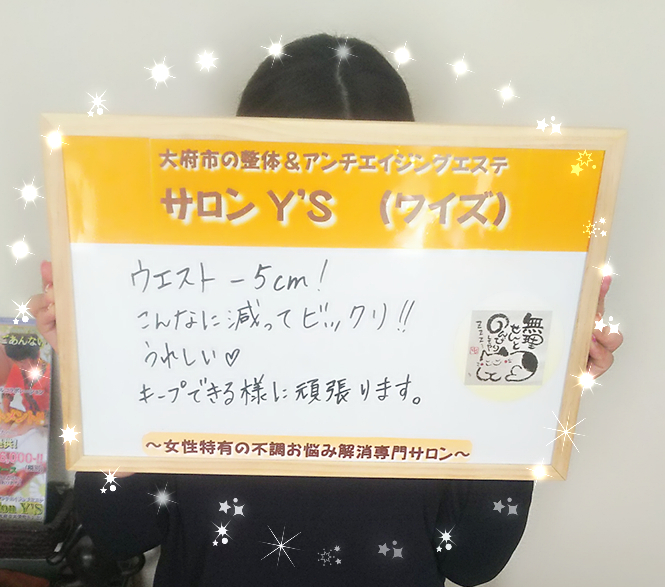 大府市の整体＆アンチエイジングエステ
サロン Y'S （ワイズ）
ウエスト －5cm！
こんなに減ってビックリ!!
うれしい♡
キープできる様に頑張ります。
無理
せんと
のんびり
～女性特有の不調お悩み解消専門サロン～
ごあんない
Y'S